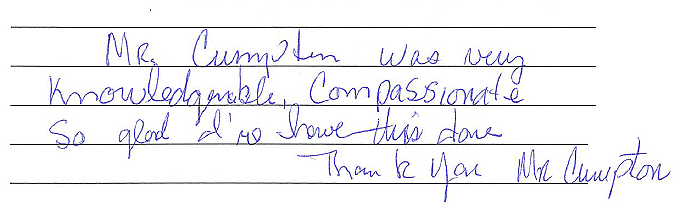 Mr. Cumpton was very
Knowledgeable, Compassionate
So glad I've have this done
Thank you Mr Cumpton